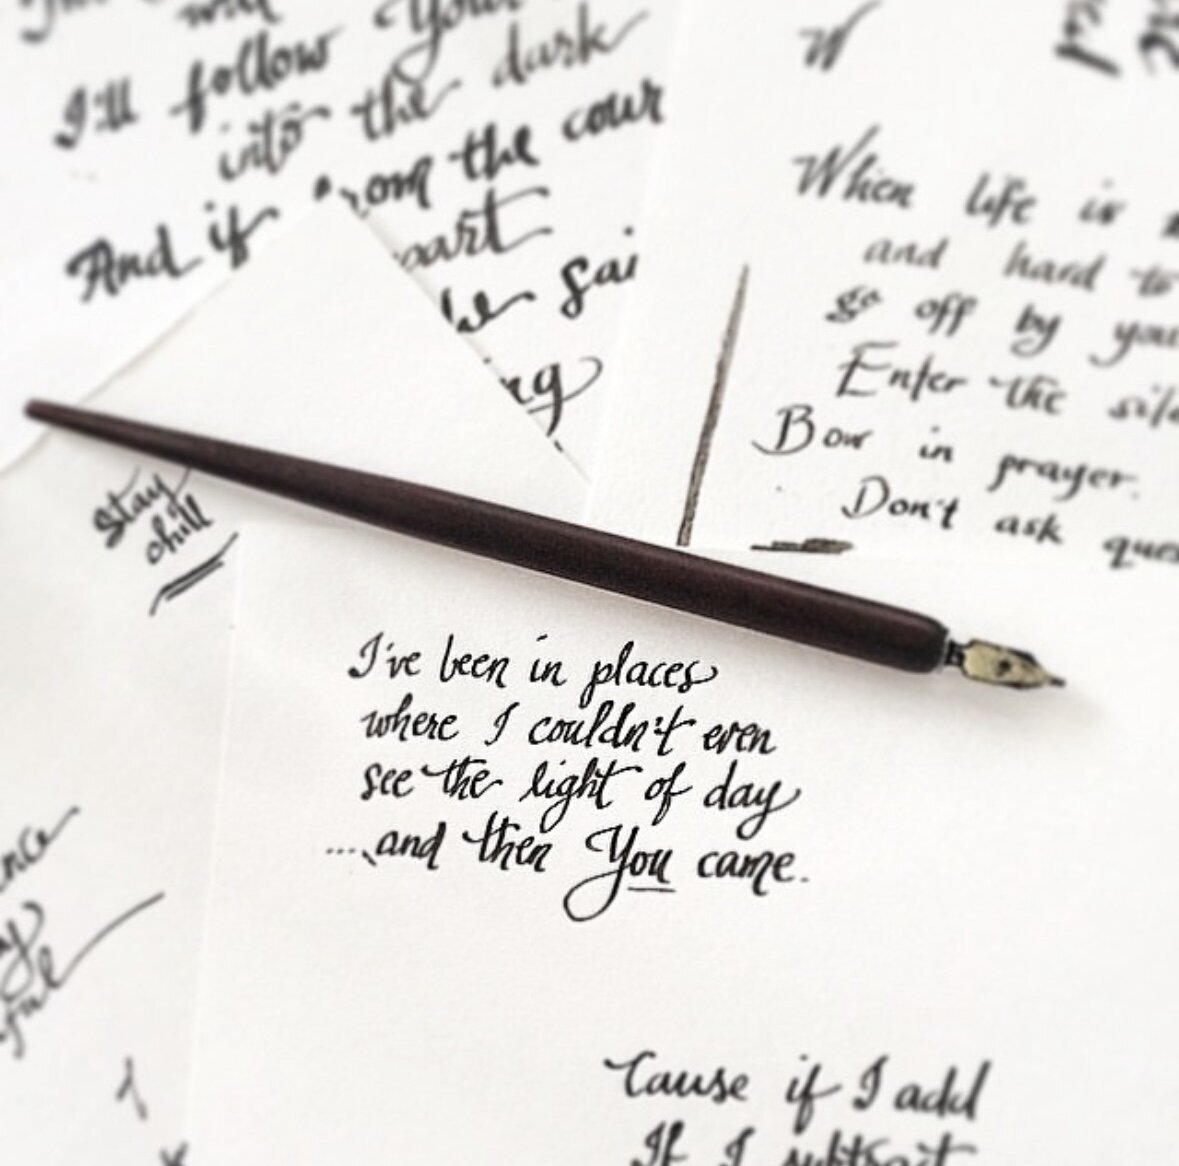 I'll follow
into the dark
And if from the cour
part
he sai
ng
W
When life is
and hard to
go off by you
Enter the sile
Bow in prayer.
Don't ask ques
Stay
chill
I've been in places
where I couldn't even
see the light of day
....and then You came.
'Cause if I add
If I subtract